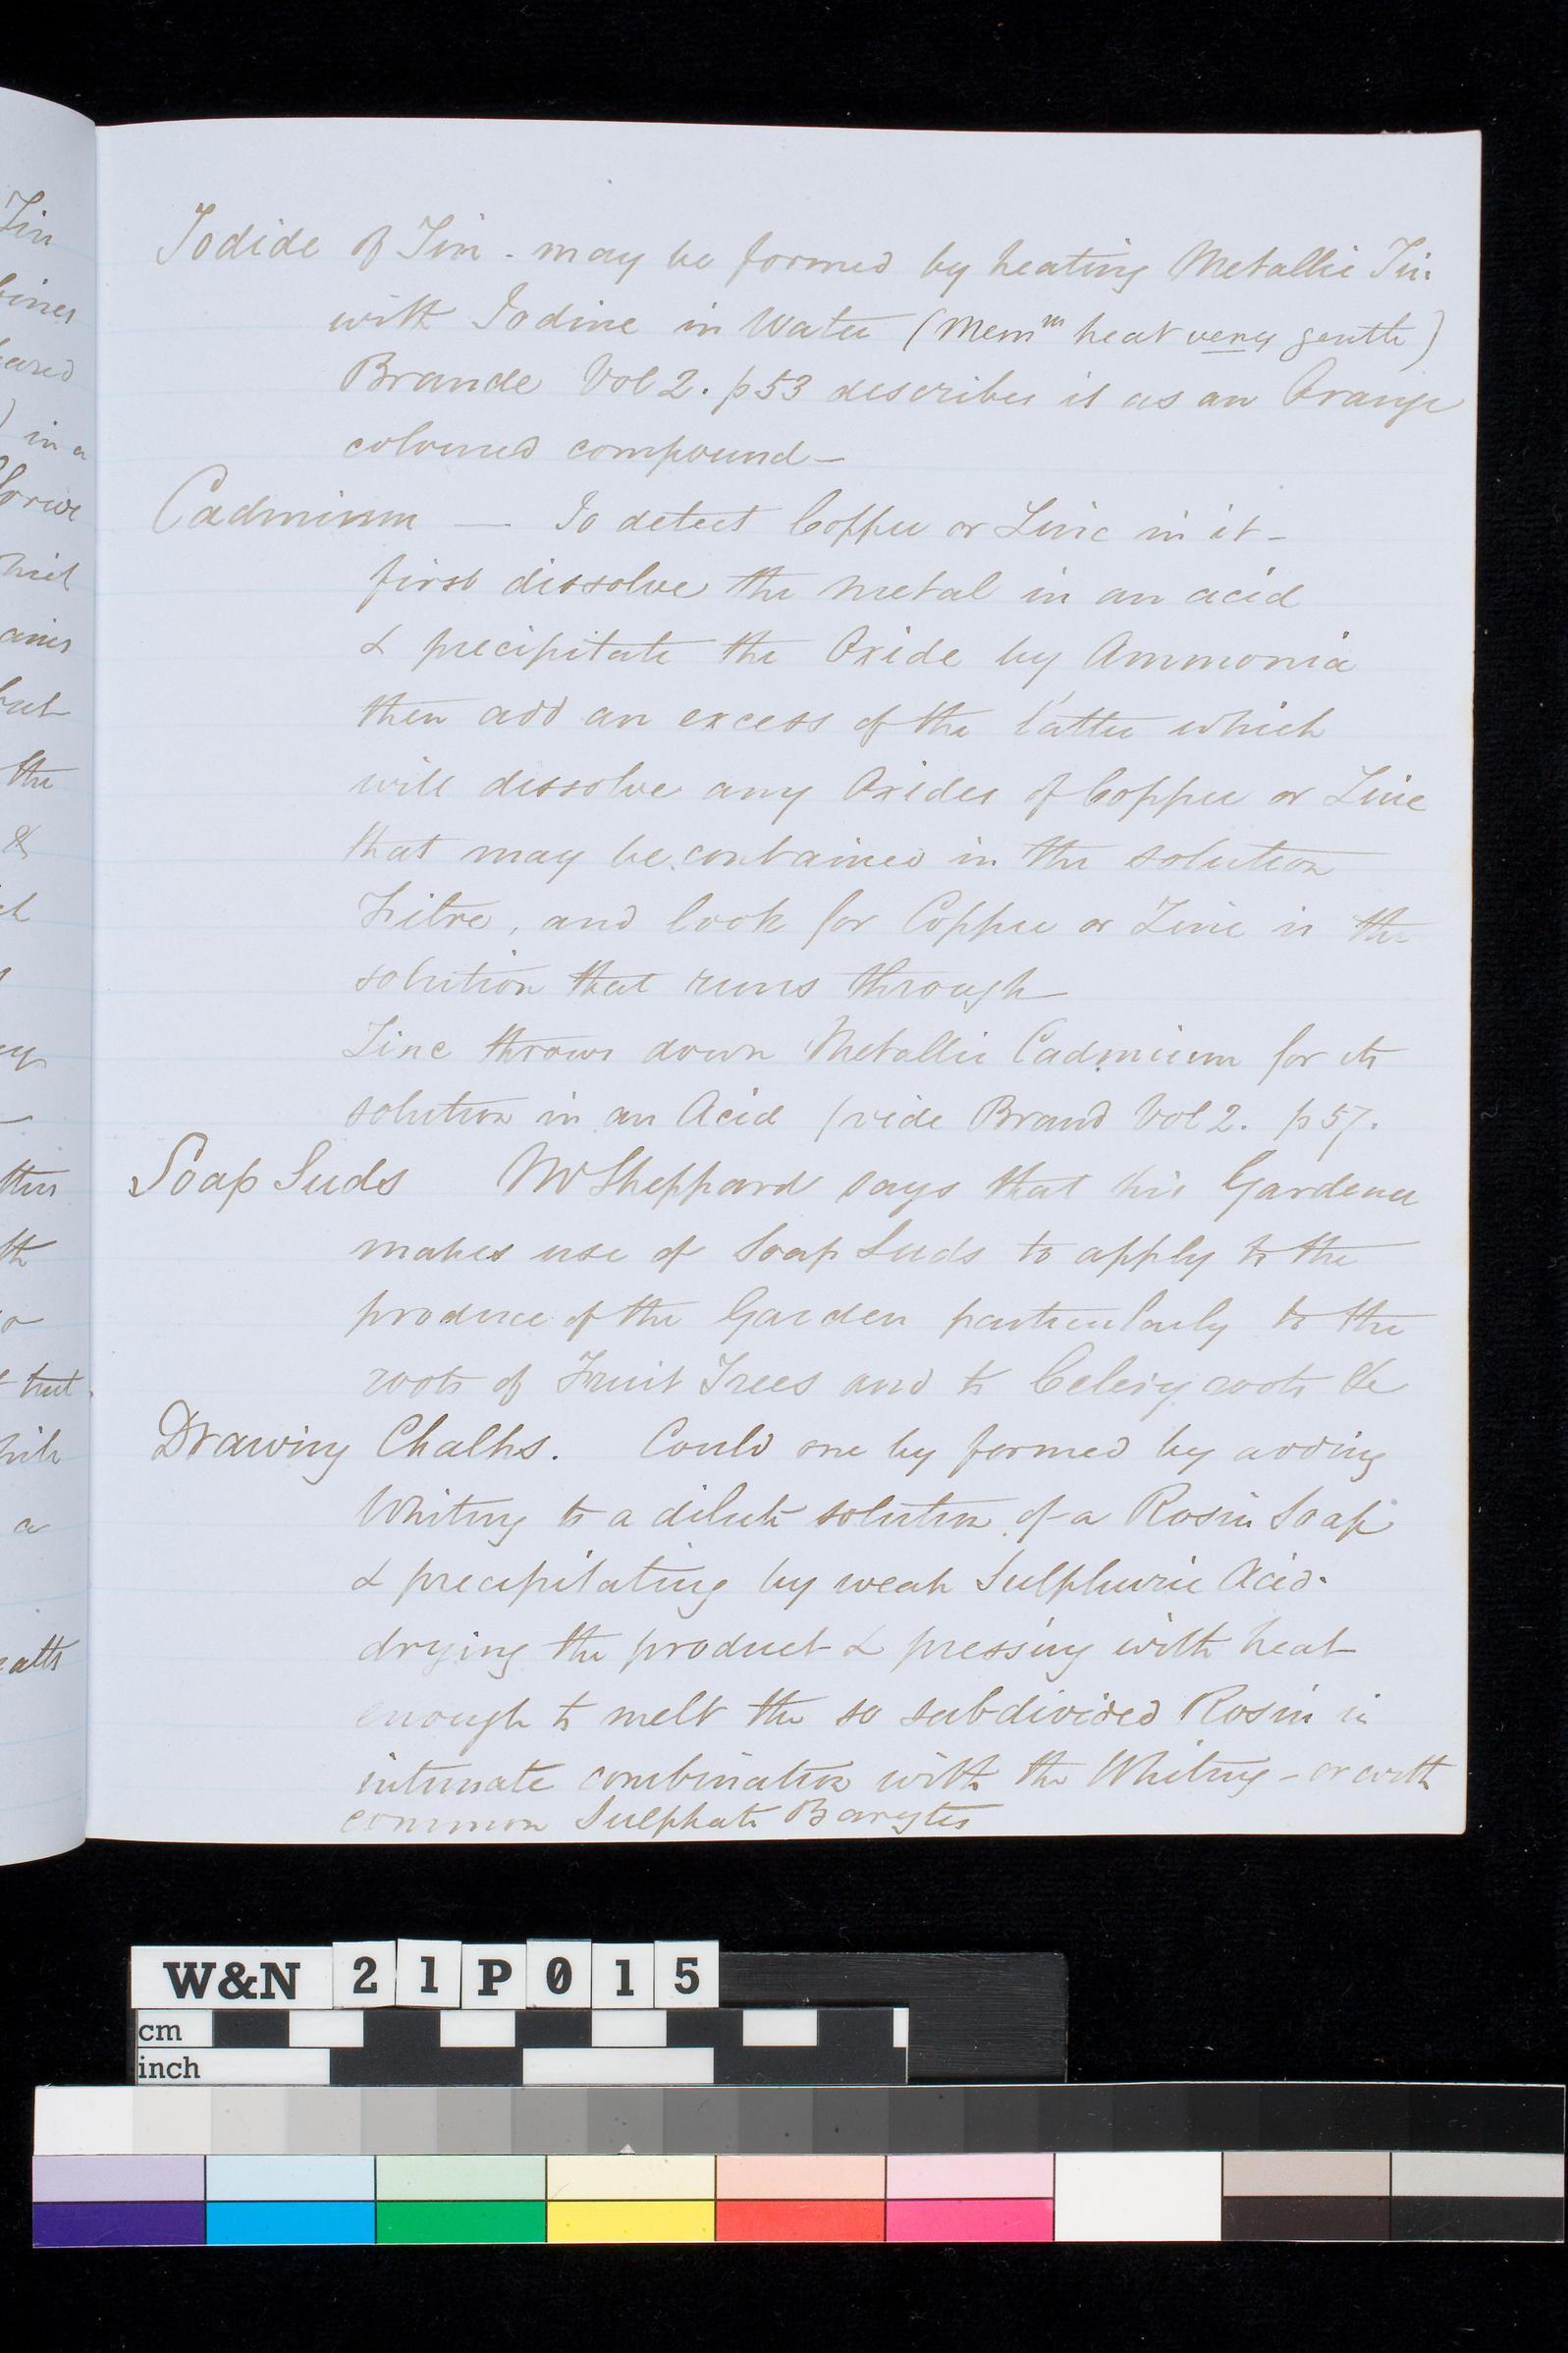 Iodide of Tin . may be formed by heating Metallic Tin
with Iodine in Water (Memm heat very gentle)
Brande Vol 2. p53 describes it as an Orange
coloured compound —
Cadmium — To detect Copper or Zinc in it –
first dissolve the metal in an acid
& precipitate the Oxide by Ammonia
then add an excess of the latter which
will dissolve any Oxides of Copper or Zinc
that may be contained in the solution
Filtre, and look for Copper or Zinc in the
solution that runs through —
Zinc throws down Metallic Cadmium for its
solution in an Acid (vide Brand Vol 2. p57.
Soap Suds Mr Sheppard says that his Gardener
makes use of Soap Suds to apply to the
produce of the Garden particularly to the
roots of Fruit Trees and to Celery roots &c
Drawing Chalks. Could one by formed by adding
Whiting to a dilute solution of a Rosin Soap
& precipitating by weak Sulphuric Acid.
drying the product & pressing with heat
enough to melt the so subdivided Rosin in
intimate combination with the Whiting – or with
common Sulphate Barytes
Tin
in a
but
the
&
this
a
W&N 21P015
cm
inch